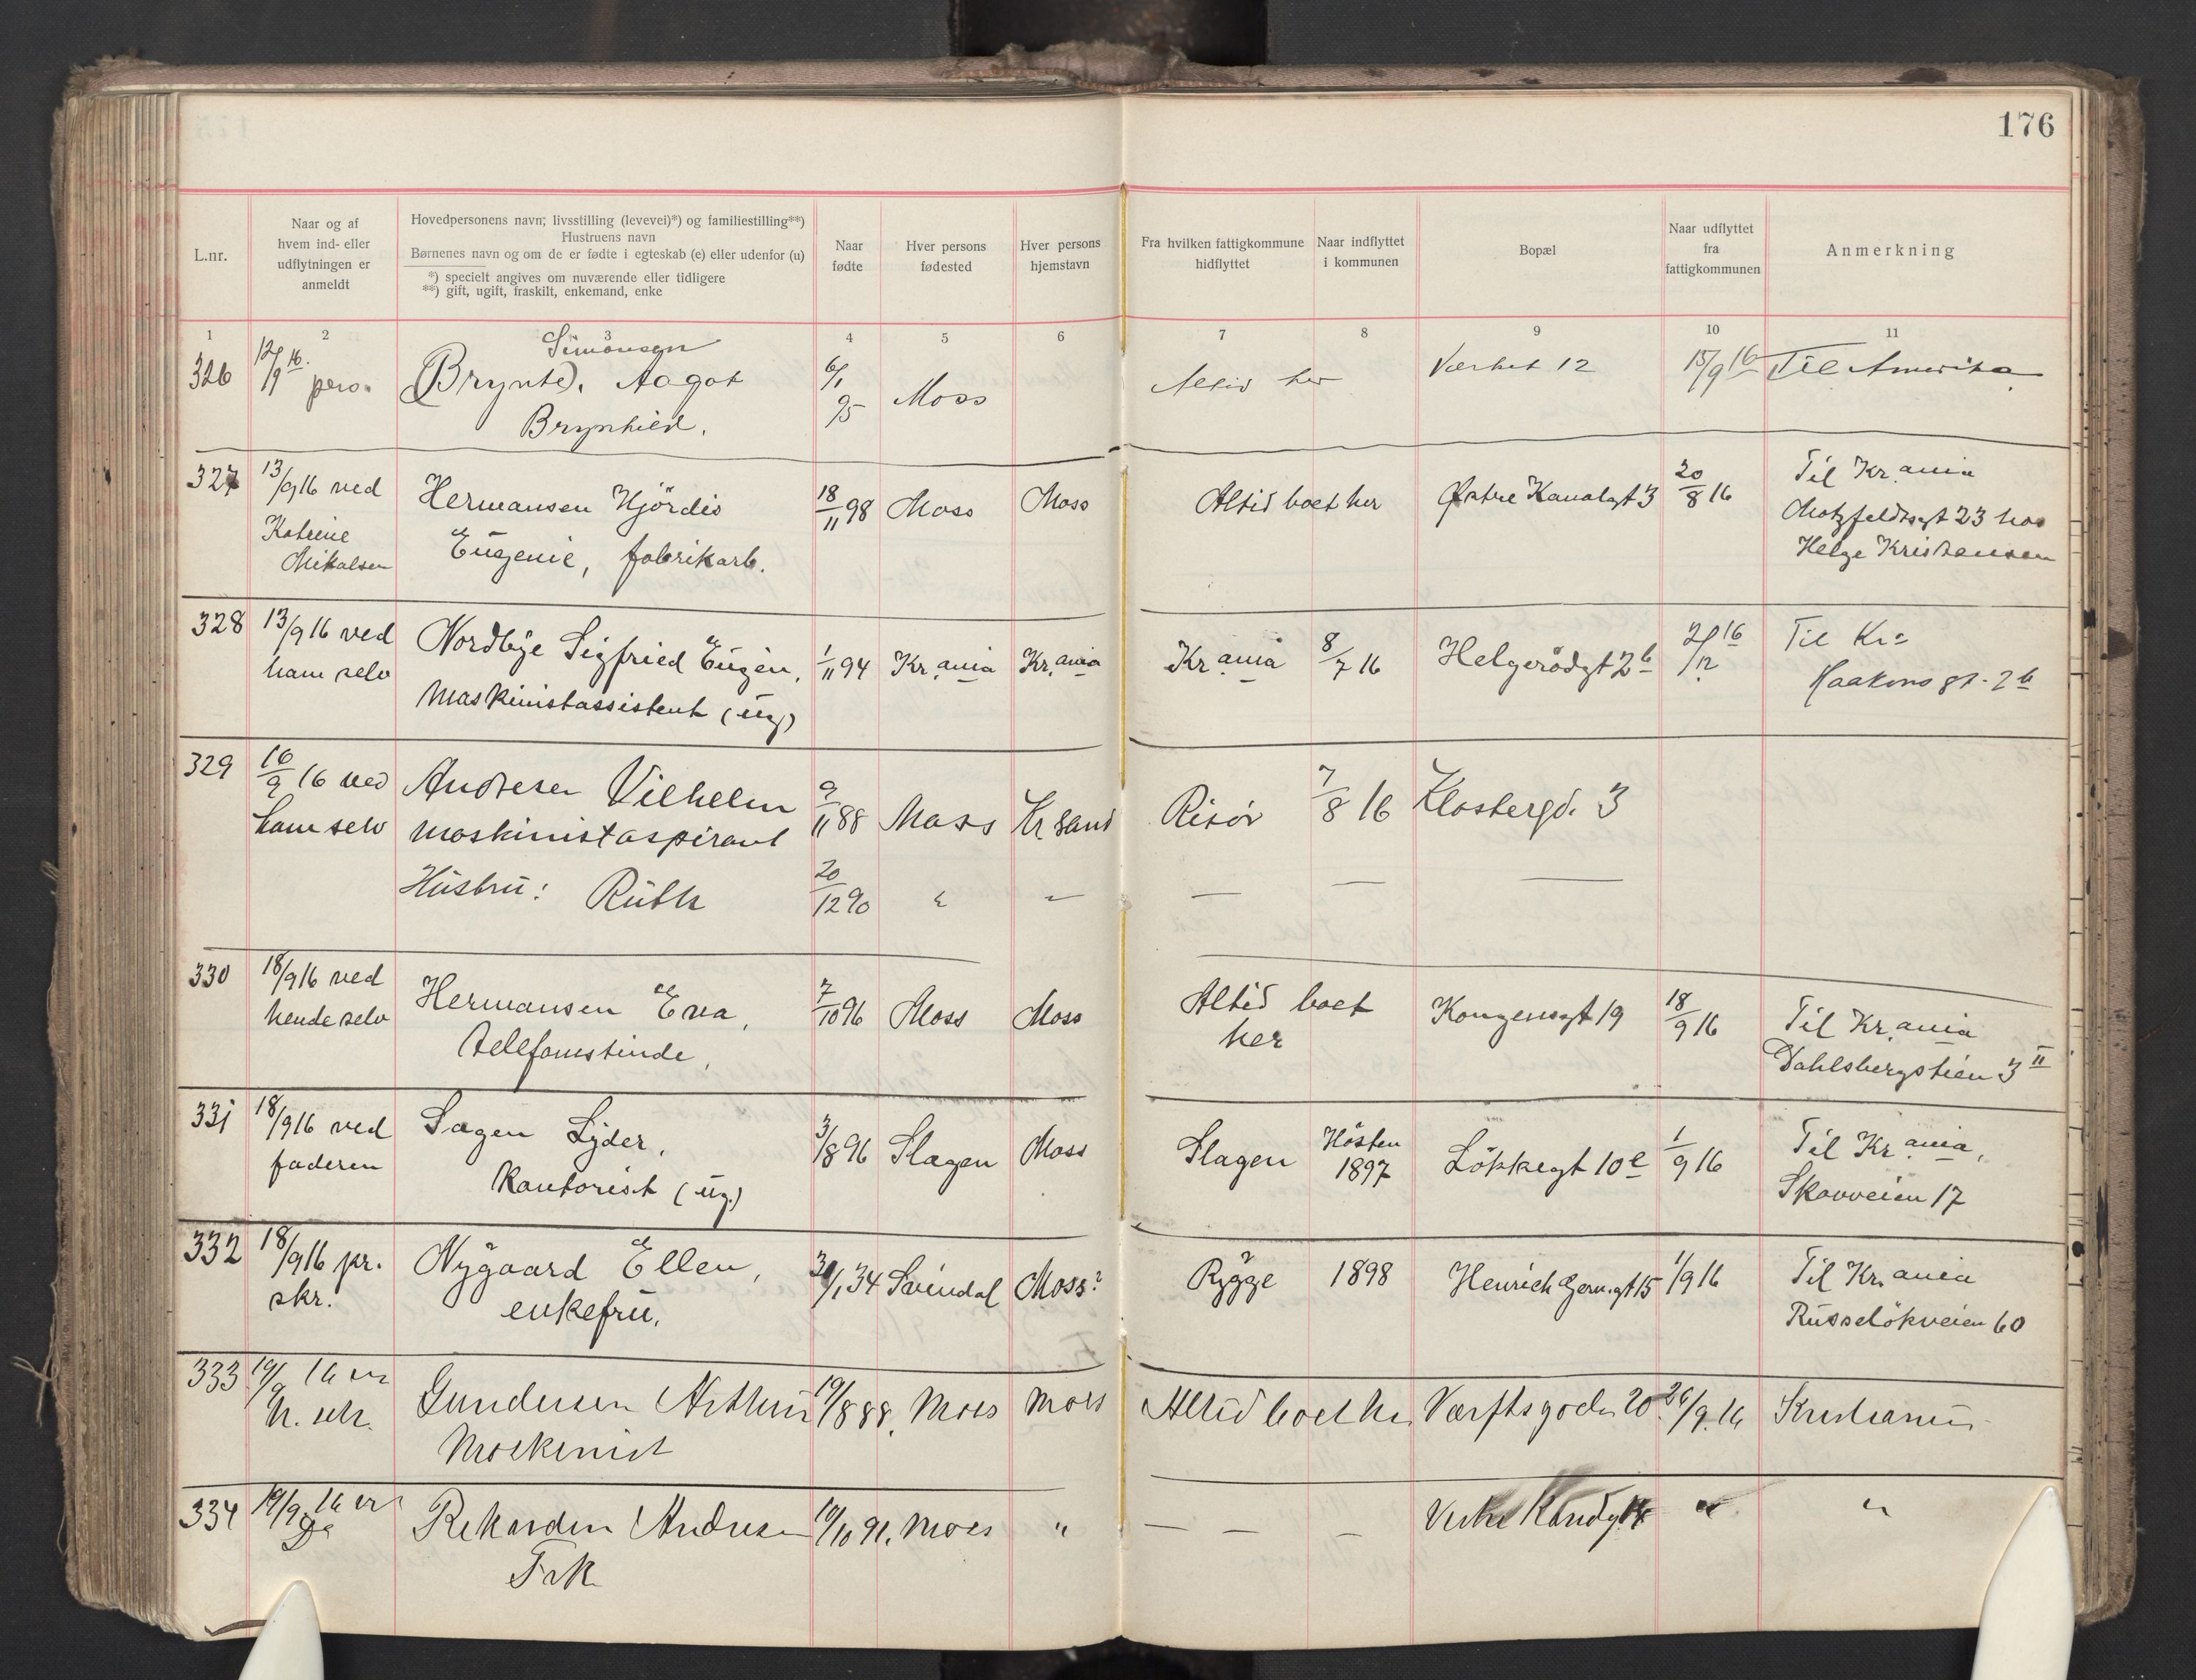 176
L.nr.
Naar og af
hvem ind- eller
udflytningen er
anmeldt
Hovedpersonens navn; livsstilling (levevei)*) og familiestilling**)
Hustruens navn
Børnenes navn og om de er fødte i egteskab (e) eller udenfor (u)
*) specielt angives om nuværende eller tidligere
**) gift, ugift, fraskilt, enkemand, enke
Naar
fødte
Hver persons
fødested
Hver persons
hjemstavn
Fra hvilken fattigkommune
hidflyttet
Naar indflyttet
i kommunen
Bopæl
Naar udflyttet
fra
fattigkommunen
Anmerkning
1 2 3 4 5 6 7 8 9 10 11
Simonsen
326 12/9 16. pers. Brynild. Aagot 6/1 95 Moss Altid her Værket 12 15/9 16 Til Amerika
Brynhild.
327 13/9 16 ved Hermansen Hjördis 18/11 98 Moss Moss Altid boet her Østre Kanalgt 3 20/8 16 Til Kr.ania
Katrine Eugenie, fabrikarb. Motzfeldtsgt 23 hos
Mikalsen Helge Kristensen
328 13/9 16 ved Nordbye Sigfried Eugèn, 1/11 94 Kr.ania Kr.ania Kr.ania 8/7 16 Helgerödgt 2b 2/12 16 Til Kra
ham selv Maskinistassistent (ug) Haakons gt. 2b
329 16/9 16 ved Andresen Vilhelm 9/11 88 Moss Kr sand Risör 7/8 16 Klostergd. 3
ham selv maskinistaspirant
Hustru: Ruth 20/12 90 " — — — —
330 18/9 16 ved Hermansen Eva, 7/10 96 Moss Moss Altid boet Kongensgt 19 18/9 16 Til Kr.ania
hende selv telefonistinde, her Dahlsbergstien 3 II
331 18/9 16 ved Sagen Lyder, 3/8 96 Slagen Moss Slagen Hösten 1897 Lökkegt 10e 1/9 16 Til Kr.ania,
faderen Kontorist (ug.) Skovveien 17
332 18/9 16 pr. Nygaard Ellen, 30/1 34 Svindal Moss? Rygge 1898 Henrich Gern.gt 15 1/9 16 Til Kr.ania
skr. enkefru. Russelökveien 60
333 19/9 16 Gundersen Arthur 19/8 88. Moss Moss Altid boet her Værftsgaden 20 26/9 16 Kristiania
Maskinist
334 19/9 16 Rikardsen Andrea 19/10 91. Moss " — — — "
Frk